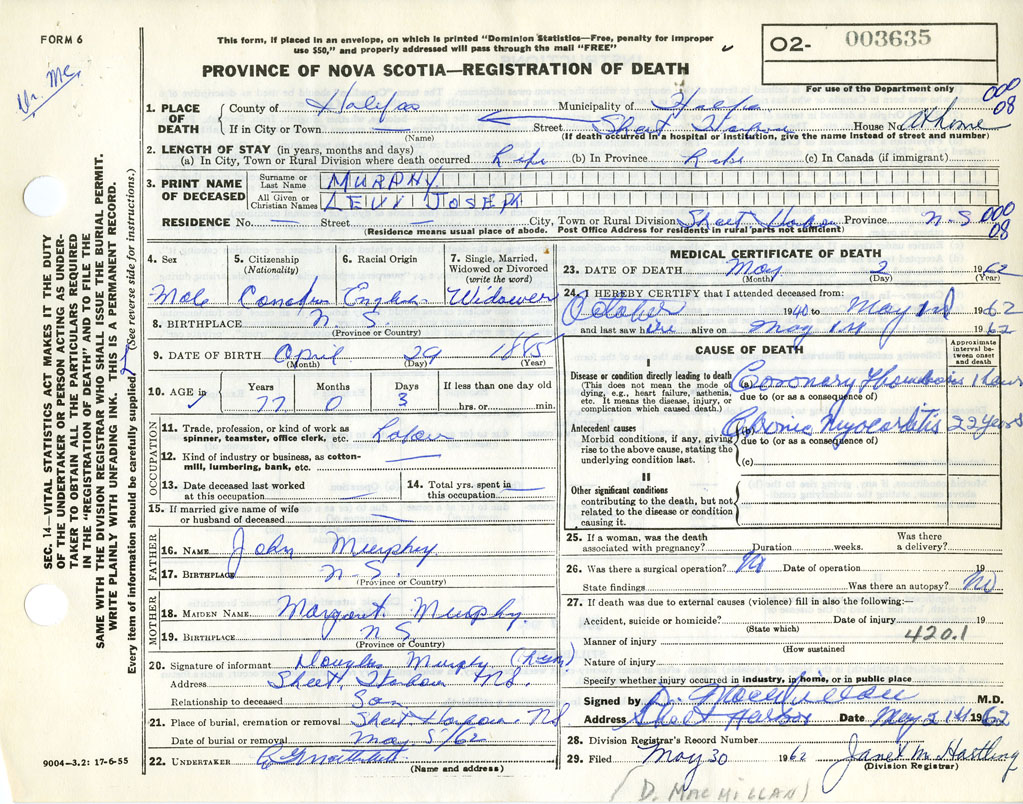 FORM 6
This form, if placed in an envelope, on which is printed "Dominion Statistics—Free, penalty for improper
use $50," and properly addressed will pass through the mail "FREE"
O2- 003635
PROVINCE OF NOVA SCOTIA—REGISTRATION OF DEATH
For use of the Department only
000
08
1. PLACE OF DEATH
County of Halifax Municipality of Halifax
If in City or Town — (Name) Street Sheet Harbour House No. at home
(If death occurred in a hospital or institution, give the name instead of street and number)
2. LENGTH OF STAY (in years, months and days)
(a) In City, Town or Rural Division where death occurred Life (b) In Province Life (c) In Canada (if immigrant)
3. PRINT NAME OF DECEASED
Surname or Last Name MURPHY
All Given or Christian Names LEVI JOSEPH
RESIDENCE No. — Street — City, Town or Rural Division Sheet Harbour Province N-S
(Residence means usual place of abode. Post Office Address for residents in rural parts not sufficient)
000
08
4. Sex
Male
5. Citizenship (Nationality)
6. Racial Origin
English
7. Single, Married, Widowed or Divorced (write the word)
Widower
8. BIRTHPLACE N. S.
(Province or Country)
9. DATE OF BIRTH April (Month) 29 (Day) 1885 (Year)
10. AGE in Years 77 Months 0 Days 3 If less than one day old hrs. or min.
OCCUPATION
11. Trade, profession, or kind of work as spinner, teamster, office clerk, etc. Labour
12. Kind of industry or business, as cotton-mill, lumbering, bank, etc.
13. Date deceased last worked at this occupation —
14. Total yrs. spent in this occupation —
15. If married give name of wife or husband of deceased —
FATHER
16. NAME John Murphy
17. BIRTHPLACE N. S.
(Province or Country)
MOTHER
18. MAIDEN NAME Margaret Murphy
19. BIRTHPLACE N S.
(Province or Country)
20. Signature of informant Douglas Murphy
Address Sheet Harbour NS.
Relationship to deceased Son
21. Place of burial, cremation or removal Sheet Harbour, NS
Date of burial or removal May 5/62
22. UNDERTAKER
(Name and address)
9004—3.2: 17-6-55
MEDICAL CERTIFICATE OF DEATH
23. DATE OF DEATH May (Month) 2 (Day) 1962 (Year)
24. I HEREBY CERTIFY that I attended deceased from:
October 1940 to May 1st 1962
and last saw h alive on May 1st 1962
CAUSE OF DEATH
Approximate interval between onset and death
I
Disease or condition directly leading to death (a) Coronary Thrombosis 1 hour
(This does not mean the mode of dying, e.g., heart failure, asthenia, etc. It means the disease, injury, or complication which caused death.)
due to (or as a consequence of)
Antecedent causes (b) Chronic Myocarditis 22 years
Morbid conditions, if any, giving rise to the above cause, stating the underlying condition last.
due to (or as a consequence of)
(c)
II
Other significant conditions
contributing to the death, but not related to the disease or condition causing it.
25. If a woman, was the death associated with pregnancy? Duration weeks. Was there a delivery?
26. Was there a surgical operation? No Date of operation 19
State findings Was there an autopsy? No
27. If death was due to external causes (violence) fill in also the following:—
Accident, suicide or homicide? (State which) Date of injury 19
420.1
Manner of injury (How sustained)
Nature of injury
Specify whether injury occurred in industry, in home, or in public place
Signed by D. MacMillan M.D.
Address Sheet Harbour Date May 21st 1962
28. Division Registrar's Record Number
29. Filed May 30 1962 Janet M. Hartling
(Division Registrar)
(D. MACMILLAN)
SEC. 14—VITAL STATISTICS ACT MAKES IT THE DUTY
OF THE UNDERTAKER OR PERSON ACTING AS UNDER-
TAKER TO OBTAIN ALL THE PARTICULARS REQUIRED
IN THE "REGISTRATION OF DEATH" AND TO FILE THE
SAME WITH THE DIVISION REGISTRAR WHO SHALL ISSUE THE BURIAL PERMIT.
WRITE PLAINLY WITH UNFADING INK. THIS IS A PERMANENT RECORD.
Every item of information should be carefully supplied. (See reverse side for instructions.)